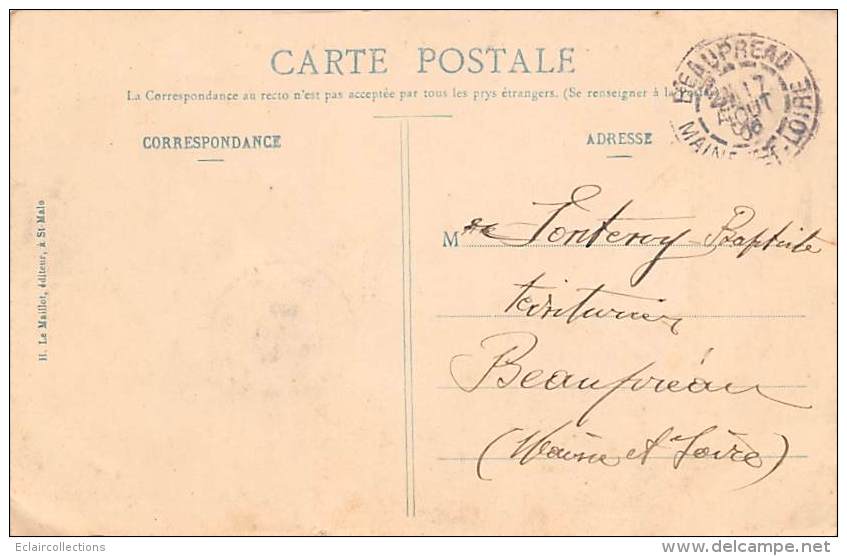 CARTE POSTALE
La Correspondance au recto n'est pas acceptée par tous les pays étrangers. (Se renseigner à la
CORRESPONDANCE
ADRESSE
BEAUPREAU
17
AOUT
06
MAINE-ET-LOIRE
H. Le Maillot, éditeur, à St-Malo
M Baptiste
teinturier
Beaupréau
(Maine et Loire)
Eclaircollections
www.delcampe.net